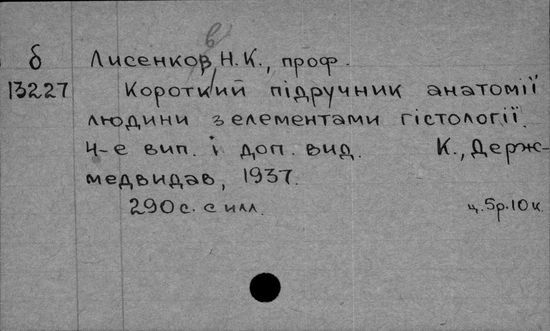 б Лисенков, Н.К., проф.
13227 Короткий підручник анатомії
людини з елементами гістології.
4-е вип. і доп. вид. К., Держ-
медвидав, 1937.
290 с. с илл. ц. 5р. 10 к.